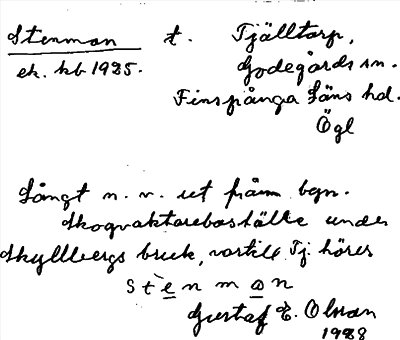 Stenmon t. Tjälltorp,
ek. kb 1925. Godegårds sn.
Finspånga Läns hd.
Ögl
Långt n. v. ut från byn.
Skogvaktareboställe under
Skyllbergs bruk, vartill Tj. hörer
stènmon
Gustaf E. Olsson
1928